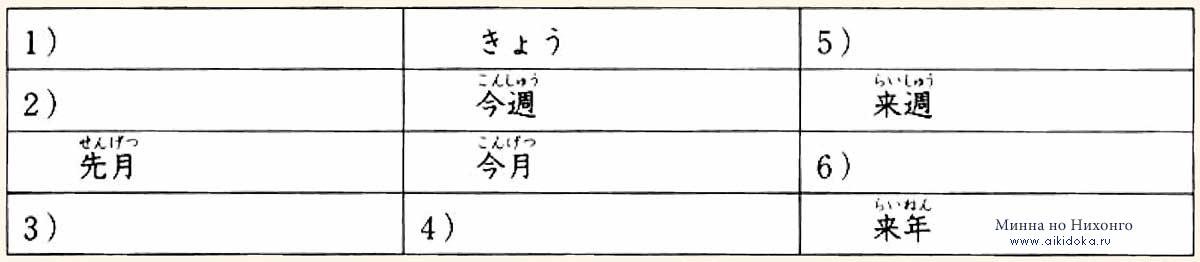 1) きょう 5)
こんしゅう らいしゅう
2) 今週 来週
せんげつ こんげつ
先月 今月 6)
らいねん
3) 4) 来年 Минна но Нихонго
www.aikidoka.ru